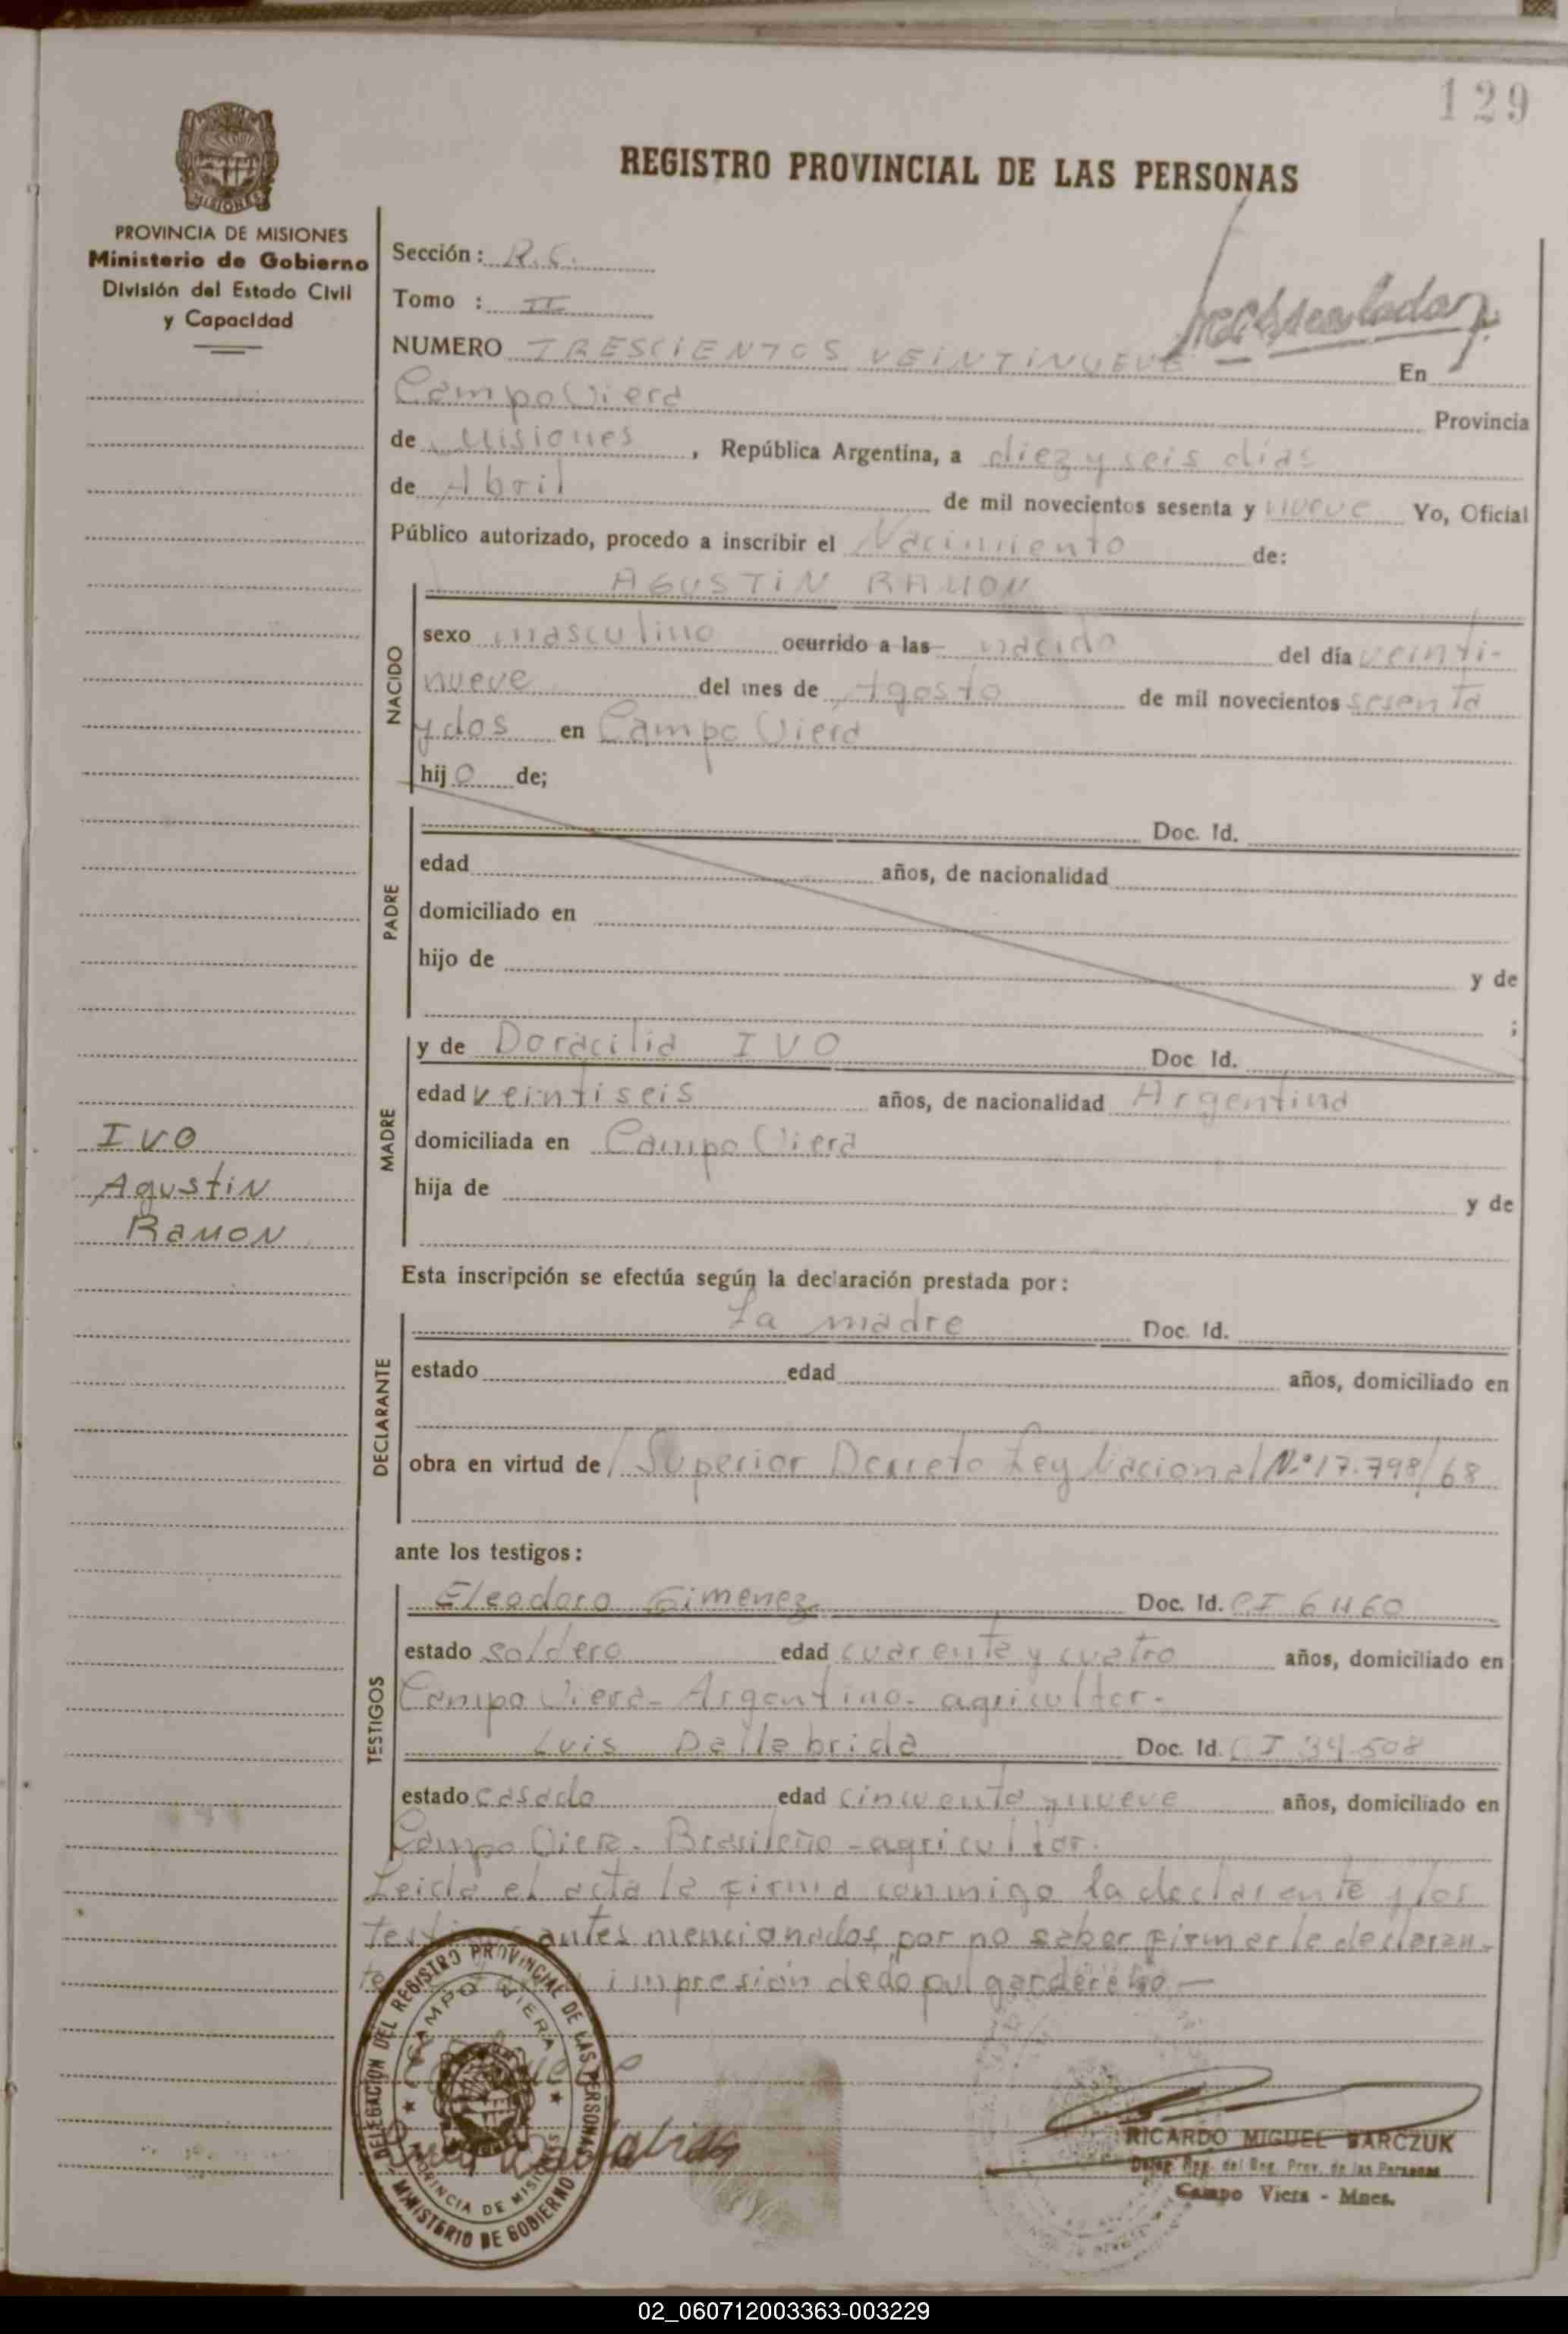 129
REGISTRO PROVINCIAL DE LAS PERSONAS
MISIONES
PROVINCIA DE MISIONES
Ministerio de Gobierno
División del Estado Civil
y Capacidad
Sección: R.C.
Tomo : II
NUMERO TRESCIENTOS VEINTINUEVE En
Campo Viera Provincia
de Misiones, República Argentina, a diez y seis dias
de Abril de mil novecientos sesenta y nueve Yo, Oficial
Público autorizado, procedo a inscribir el Nacimiento de:
NACIDO
AGUSTIN RAMON
sexo masculino ocurrido a las nacido del día veinti-
nueve del mes de Agosto de mil novecientos sesenta
y dos en Campo Viera
hijo de;
PADRE
Doc. Id.
edad años, de nacionalidad
domiciliado en
hijo de y de
;
MADRE
y de Doracilia IVO Doc Id.
edad veintiseis años, de nacionalidad Argentina
domiciliada en Campo Viera
hija de y de
IVO
Agustin
Ramon
Esta inscripción se efectúa según la declaración prestada por:
DECLARANTE
La madre Doc. Id.
estado edad años, domiciliado en
obra en virtud de Superior Decreto Ley Nacional N° 17.798/68
ante los testigos:
TESTIGOS
Eleodoro Gimenez Doc. Id. CI
estado soldero edad cuarenta y cuatro años, domiciliado en
Campo Viera - Argentino - agricultor -
Luis Dallabrida Doc. Id. CI 34508
estado casado edad cincuenta y nueve años, domiciliado en
Campo Viera - Brasileño - agricultor.
Leida el acta la firma conmigo la declarante y los
testigos antes mencionados, por no saber firmar la declaran-
te impresión dedo pulgar derecho —
DELEGACION DEL REGISTRO PROVINCIAL DE LAS PERSONAS
CAMPO VIERA
PROVINCIA DE MISIONES
MINISTERIO DE GOBIERNO
RICARDO MIGUEL BARCZUK
Deleg. Reg. del Reg. Prov. de las Personas
Campo Viera - Mnes.
02_060712003363-003229